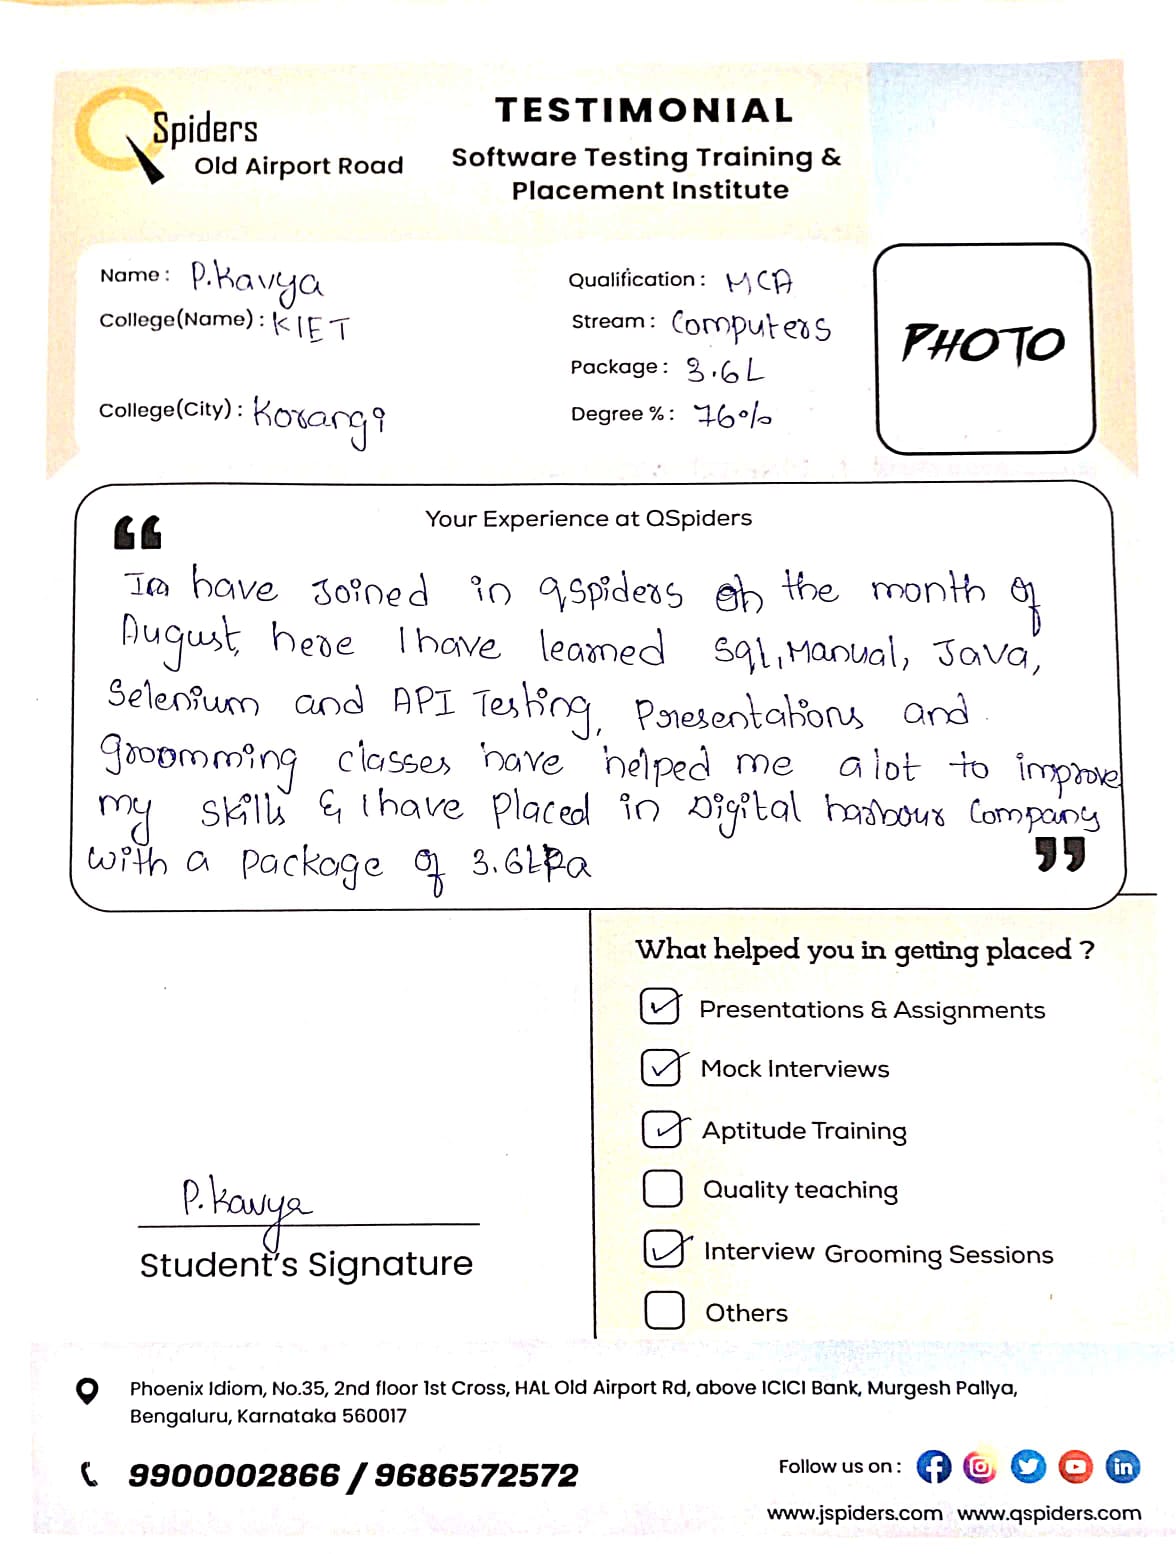 Spiders
Old Airport Road
TESTIMONIAL
Software Testing Training &
Placement Institute
Name : P.Kavya
College(Name) : KIET
College(City) : Korangi
Qualification : MCA
Stream : Computers
Package : 3.6L
Degree % : 76%
PHOTO
Your Experience at QSpiders
“
have Joined in qspiders the month of
August, here I have learned Sql, Manual, Java,
Selenium and API Testing, Presentations and
groomming classes have helped me alot to improve
my skills & I have placed in Digital harbour Company
with a package of 3.6LPa
”
What helped you in getting placed ?
Presentations & Assignments
Mock Interviews
Aptitude Training
Quality teaching
Interview Grooming Sessions
Others
P.Kavya
Student's Signature
Phoenix Idiom, No.35, 2nd floor 1st Cross, HAL Old Airport Rd, above ICICI Bank, Murgesh Pallya,
Bengaluru, Karnataka 560017
9900002866 / 9686572572
Follow us on :
www.jspiders.com www.qspiders.com